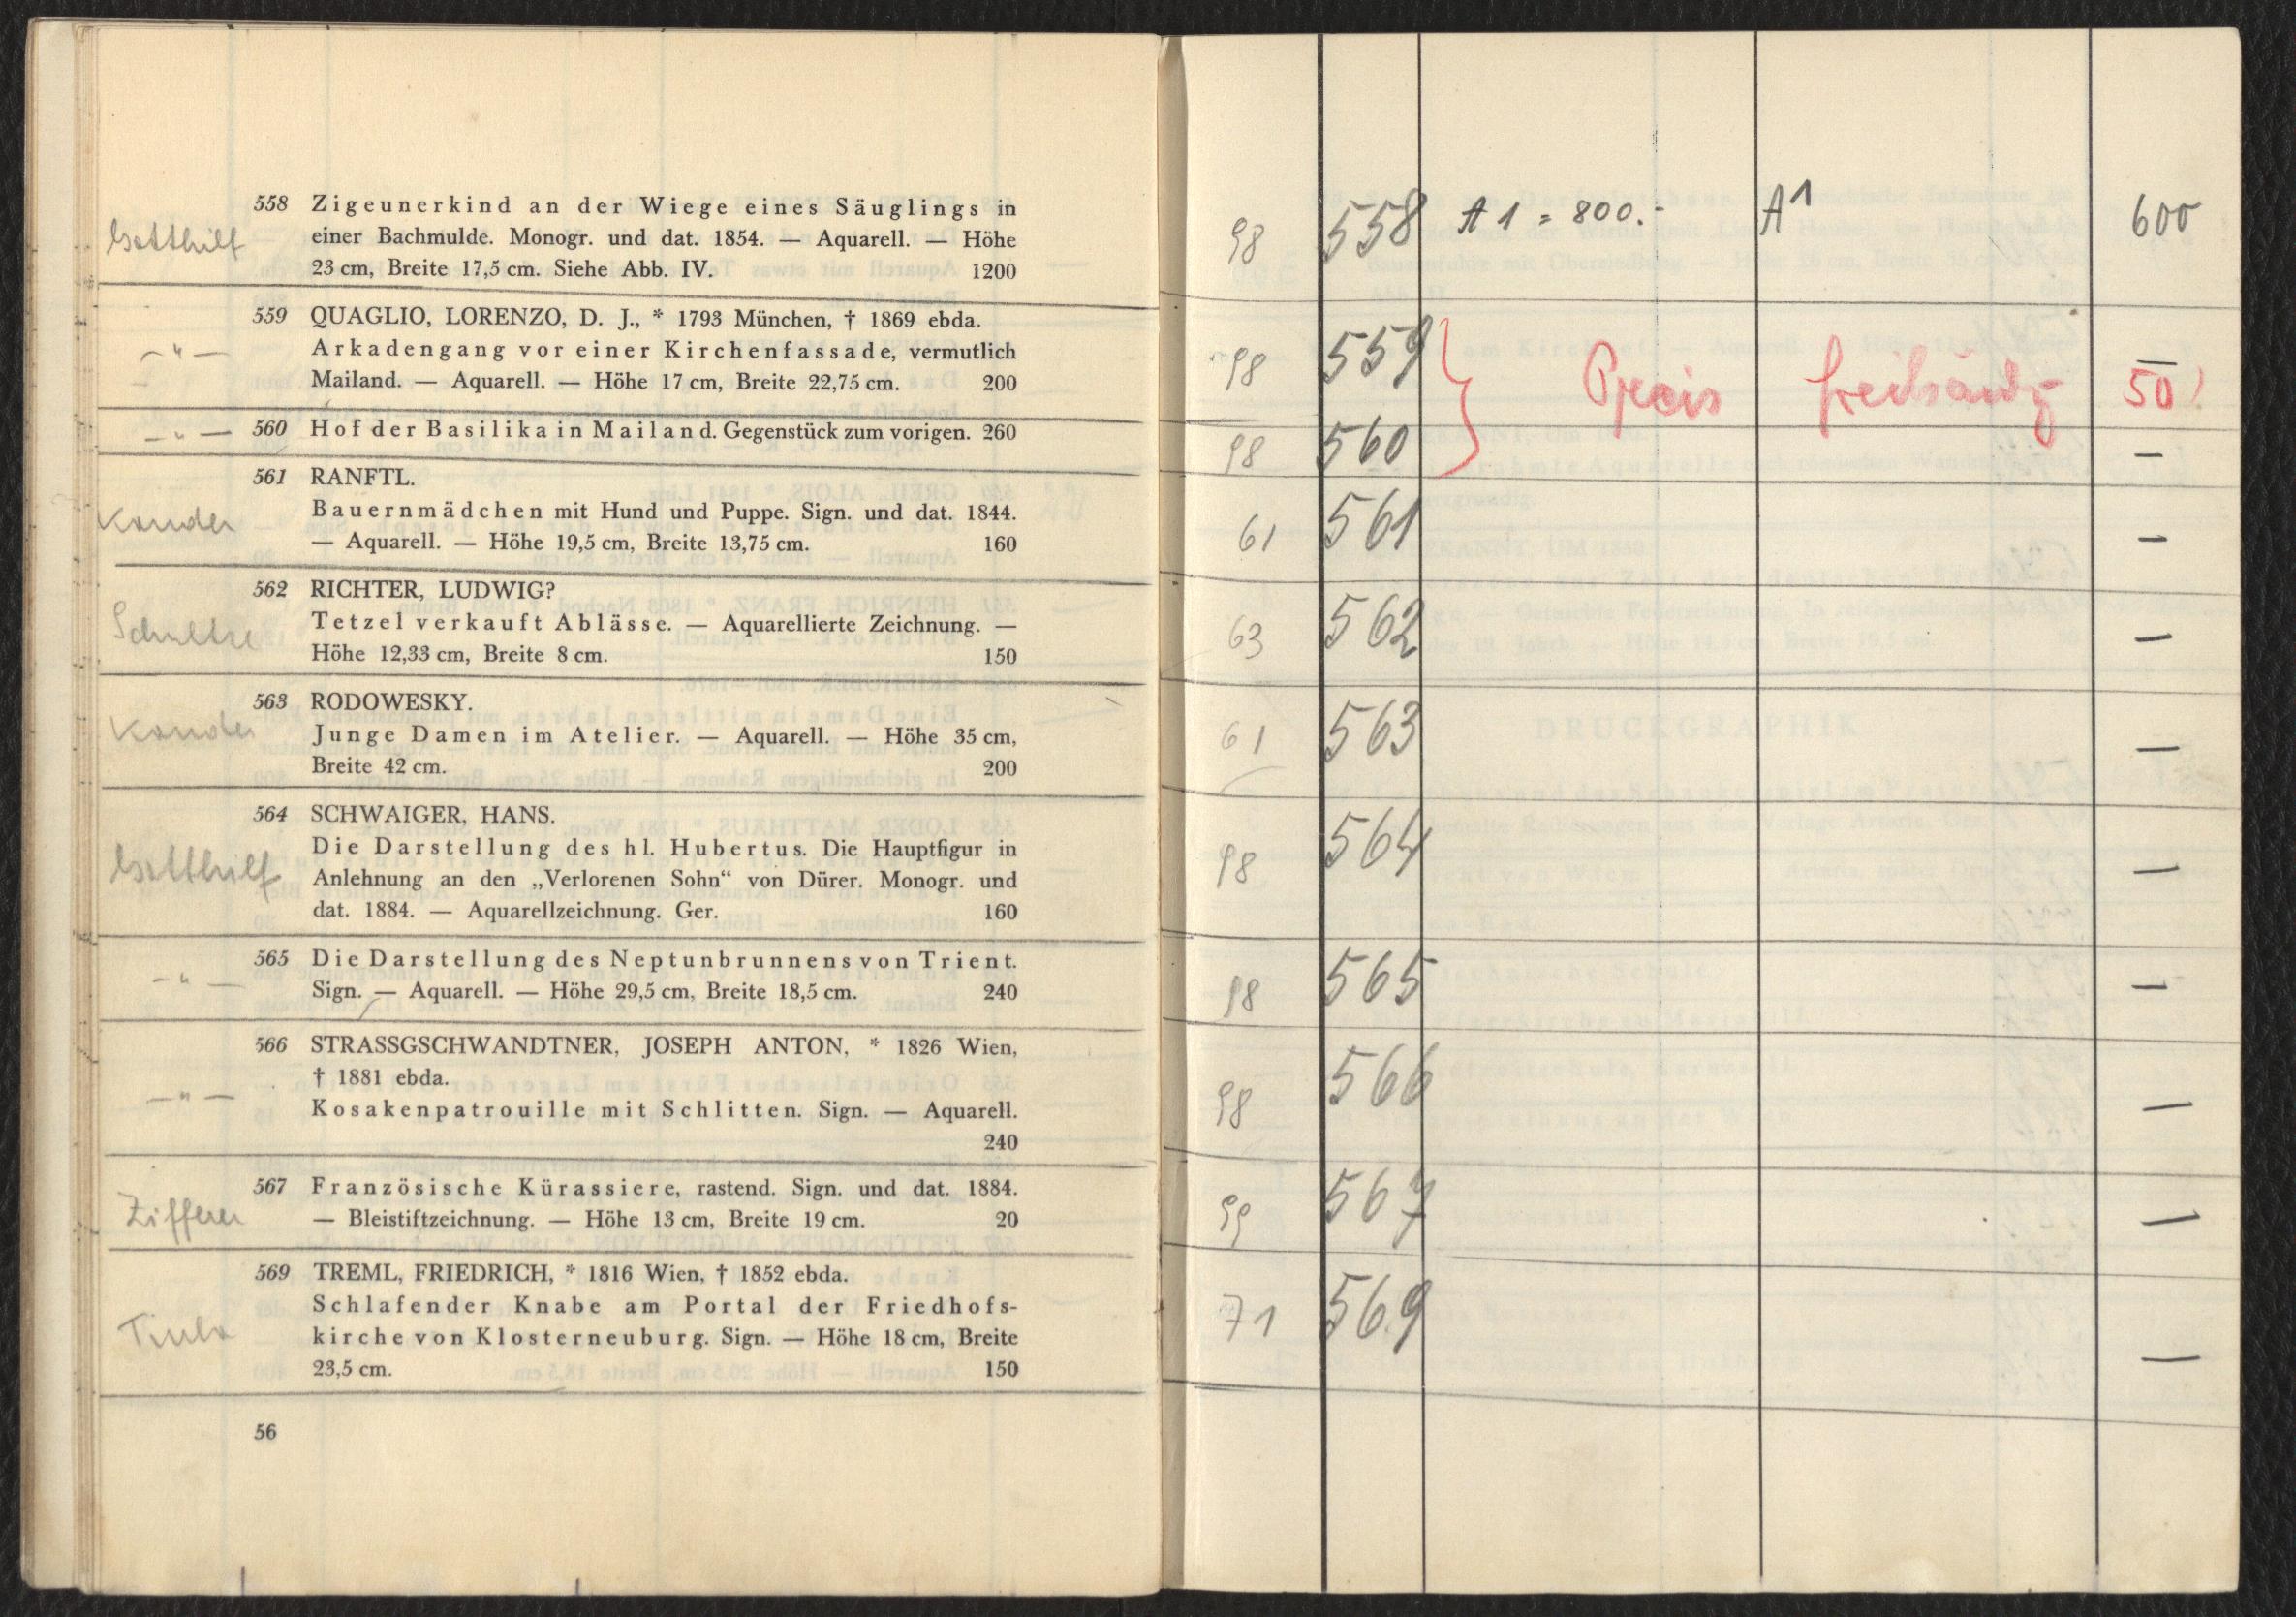 558 Zigeunerkind an der Wiege eines Säuglings in
Gotthilf
einer Bachmulde. Monogr. und dat. 1854. — Aquarell. — Höhe
23 cm, Breite 17,5 cm. Siehe Abb. IV. 1200
559 QUAGLIO, LORENZO, D. J., * 1793 München, † 1869 ebda.
— " —
Arkadengang vor einer Kirchenfassade, vermutlich
Mailand. — Aquarell. — Höhe 17 cm, Breite 22,75 cm. 200
— " — 560 Hof der Basilika in Mailand. Gegenstück zum vorigen. 260
561 RANFTL.
Kander
Bauernmädchen mit Hund und Puppe. Sign. und dat. 1844.
— Aquarell. — Höhe 19,5 cm, Breite 13,75 cm. 160
562 RICHTER, LUDWIG?
Schultze
Tetzel verkauft Ablässe. — Aquarellierte Zeichnung. —
Höhe 12,33 cm, Breite 8 cm. 150
563 RODOWESKY.
Kander
Junge Damen im Atelier. — Aquarell. — Höhe 35 cm,
Breite 42 cm. 200
564 SCHWAIGER, HANS.
Die Darstellung des hl. Hubertus. Die Hauptfigur in
Gotthilf
Anlehnung an den „Verlorenen Sohn“ von Dürer. Monogr. und
dat. 1884. — Aquarellzeichnung. Ger. 160
565 Die Darstellung des Neptunbrunnens von Trient.
— " —
Sign. — Aquarell. — Höhe 29,5 cm, Breite 18,5 cm. 240
566 STRASSGSCHWANDTNER, JOSEPH ANTON, * 1826 Wien,
† 1881 ebda.
— " —
Kosakenpatrouille mit Schlitten. Sign. — Aquarell.
240
567 Französische Kürassiere, rastend. Sign. und dat. 1884.
Zifferer
— Bleistiftzeichnung. — Höhe 13 cm, Breite 19 cm. 20
569 TREML, FRIEDRICH, * 1816 Wien, † 1852 ebda.
Schlafender Knabe am Portal der Friedhofs-
kirche von Klosterneuburg. Sign. — Höhe 18 cm, Breite
23,5 cm. 150
56
98 558 A 1 = 800.- A1 600
98 559 Preis freihändig 50
98 560 —
61 561 —
63 562 —
61 563 —
98 564 —
98 565 —
98 566 —
99 567 —
71 569 —